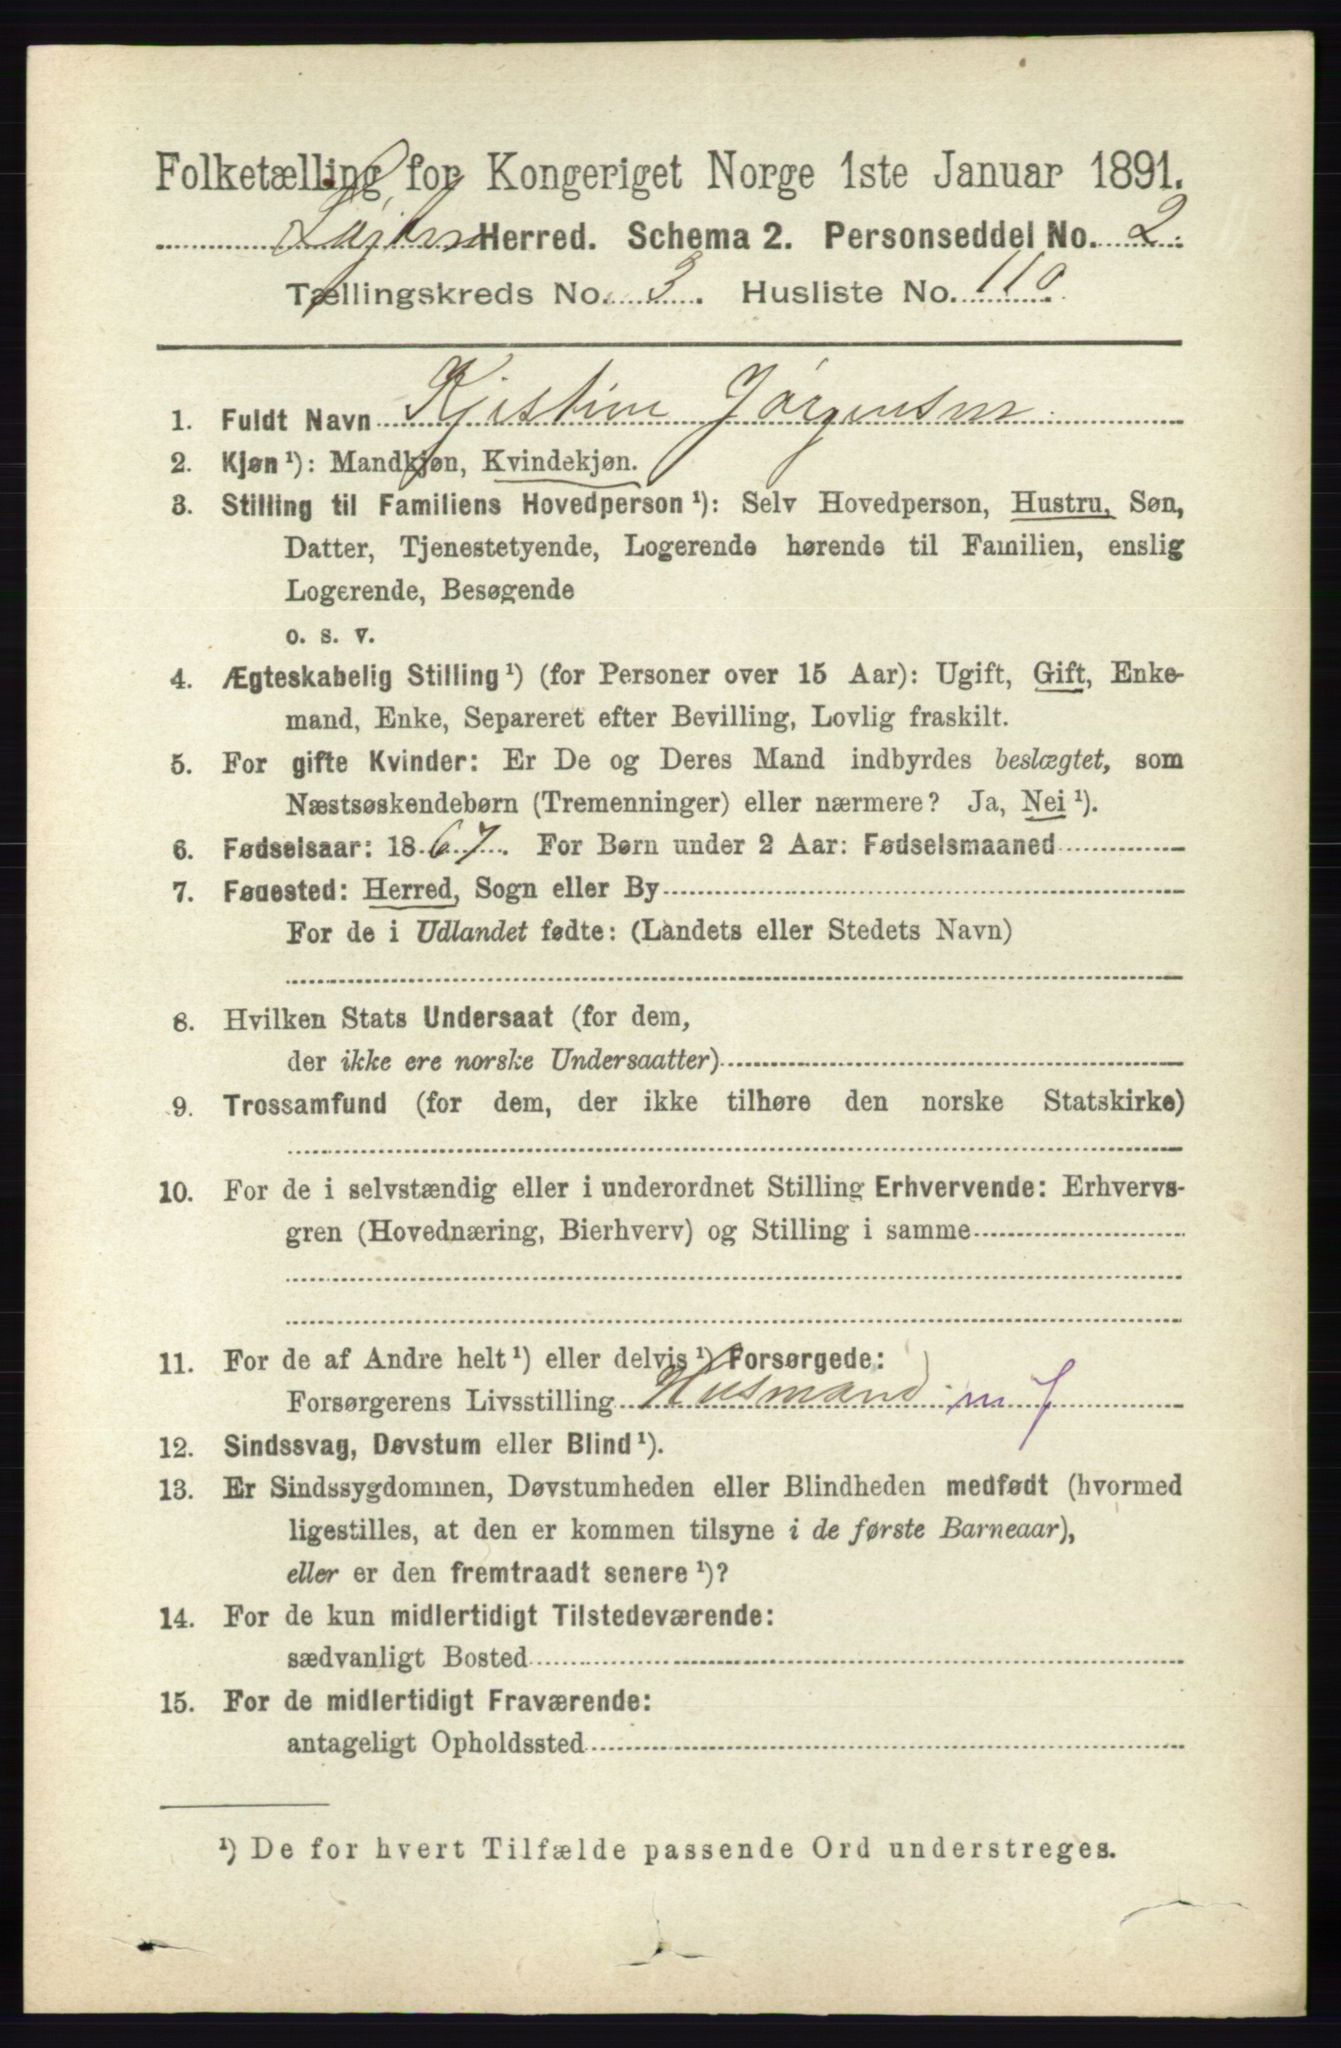 Folketælling for Kongeriget Norge 1ste Januar 1891.
Herred. Schema 2. Personseddel No. 2.
Tællingskreds No. 3. Husliste No. 110.
1. Fuldt Navn Kjestine Jörgensen
2. Kjøn¹): Mandkjøn, Kvindekjøn.
3. Stilling til Familiens Hovedperson¹): Selv Hovedperson, Hustru, Søn,
Datter, Tjenestetyende, Logerende hørende til Familien, enslig
Logerende, Besøgende
o. s. v.
4. Ægteskabelig Stilling¹) (for Personer over 15 Aar): Ugift, Gift, Enke-
mand, Enke, Separeret efter Bevilling, Lovlig fraskilt.
5. For gifte Kvinder: Er De og Deres Mand indbyrdes beslægtet, som
Næstsøskendebørn (Tremenninger) eller nærmere? Ja, Nei¹).
6. Fødselsaar: 1867. For Børn under 2 Aar: Fødselsmaaned
7. Fødested: Herred, Sogn eller By
For de i Udlandet fødte: (Landets eller Stedets Navn)
8. Hvilken Stats Undersaat (for dem,
der ikke ere norske Undersaatter)
9. Trossamfund (for dem, der ikke tilhøre den norske Statskirke)
10. For de i selvstændig eller i underordnet Stilling Erhvervende: Erhvervs-
gren (Hovednæring, Bierhverv) og Stilling i samme
11. For de af Andre helt¹) eller delvis¹) Forsørgede:
Forsørgerens Livsstilling Husmand m j
12. Sindssvag, Døvstum eller Blind¹).
13. Er Sindssygdommen, Døvstumheden eller Blindheden medfødt (hvormed
ligestilles, at den er kommen tilsyne i de første Barneaar),
eller er den fremtraadt senere¹)?
14. For de kun midlertidigt Tilstedeværende:
sædvanligt Bosted
15. For de midlertidigt Fraværende:
antageligt Opholdssted
¹) De for hvert Tilfælde passende Ord understreges.